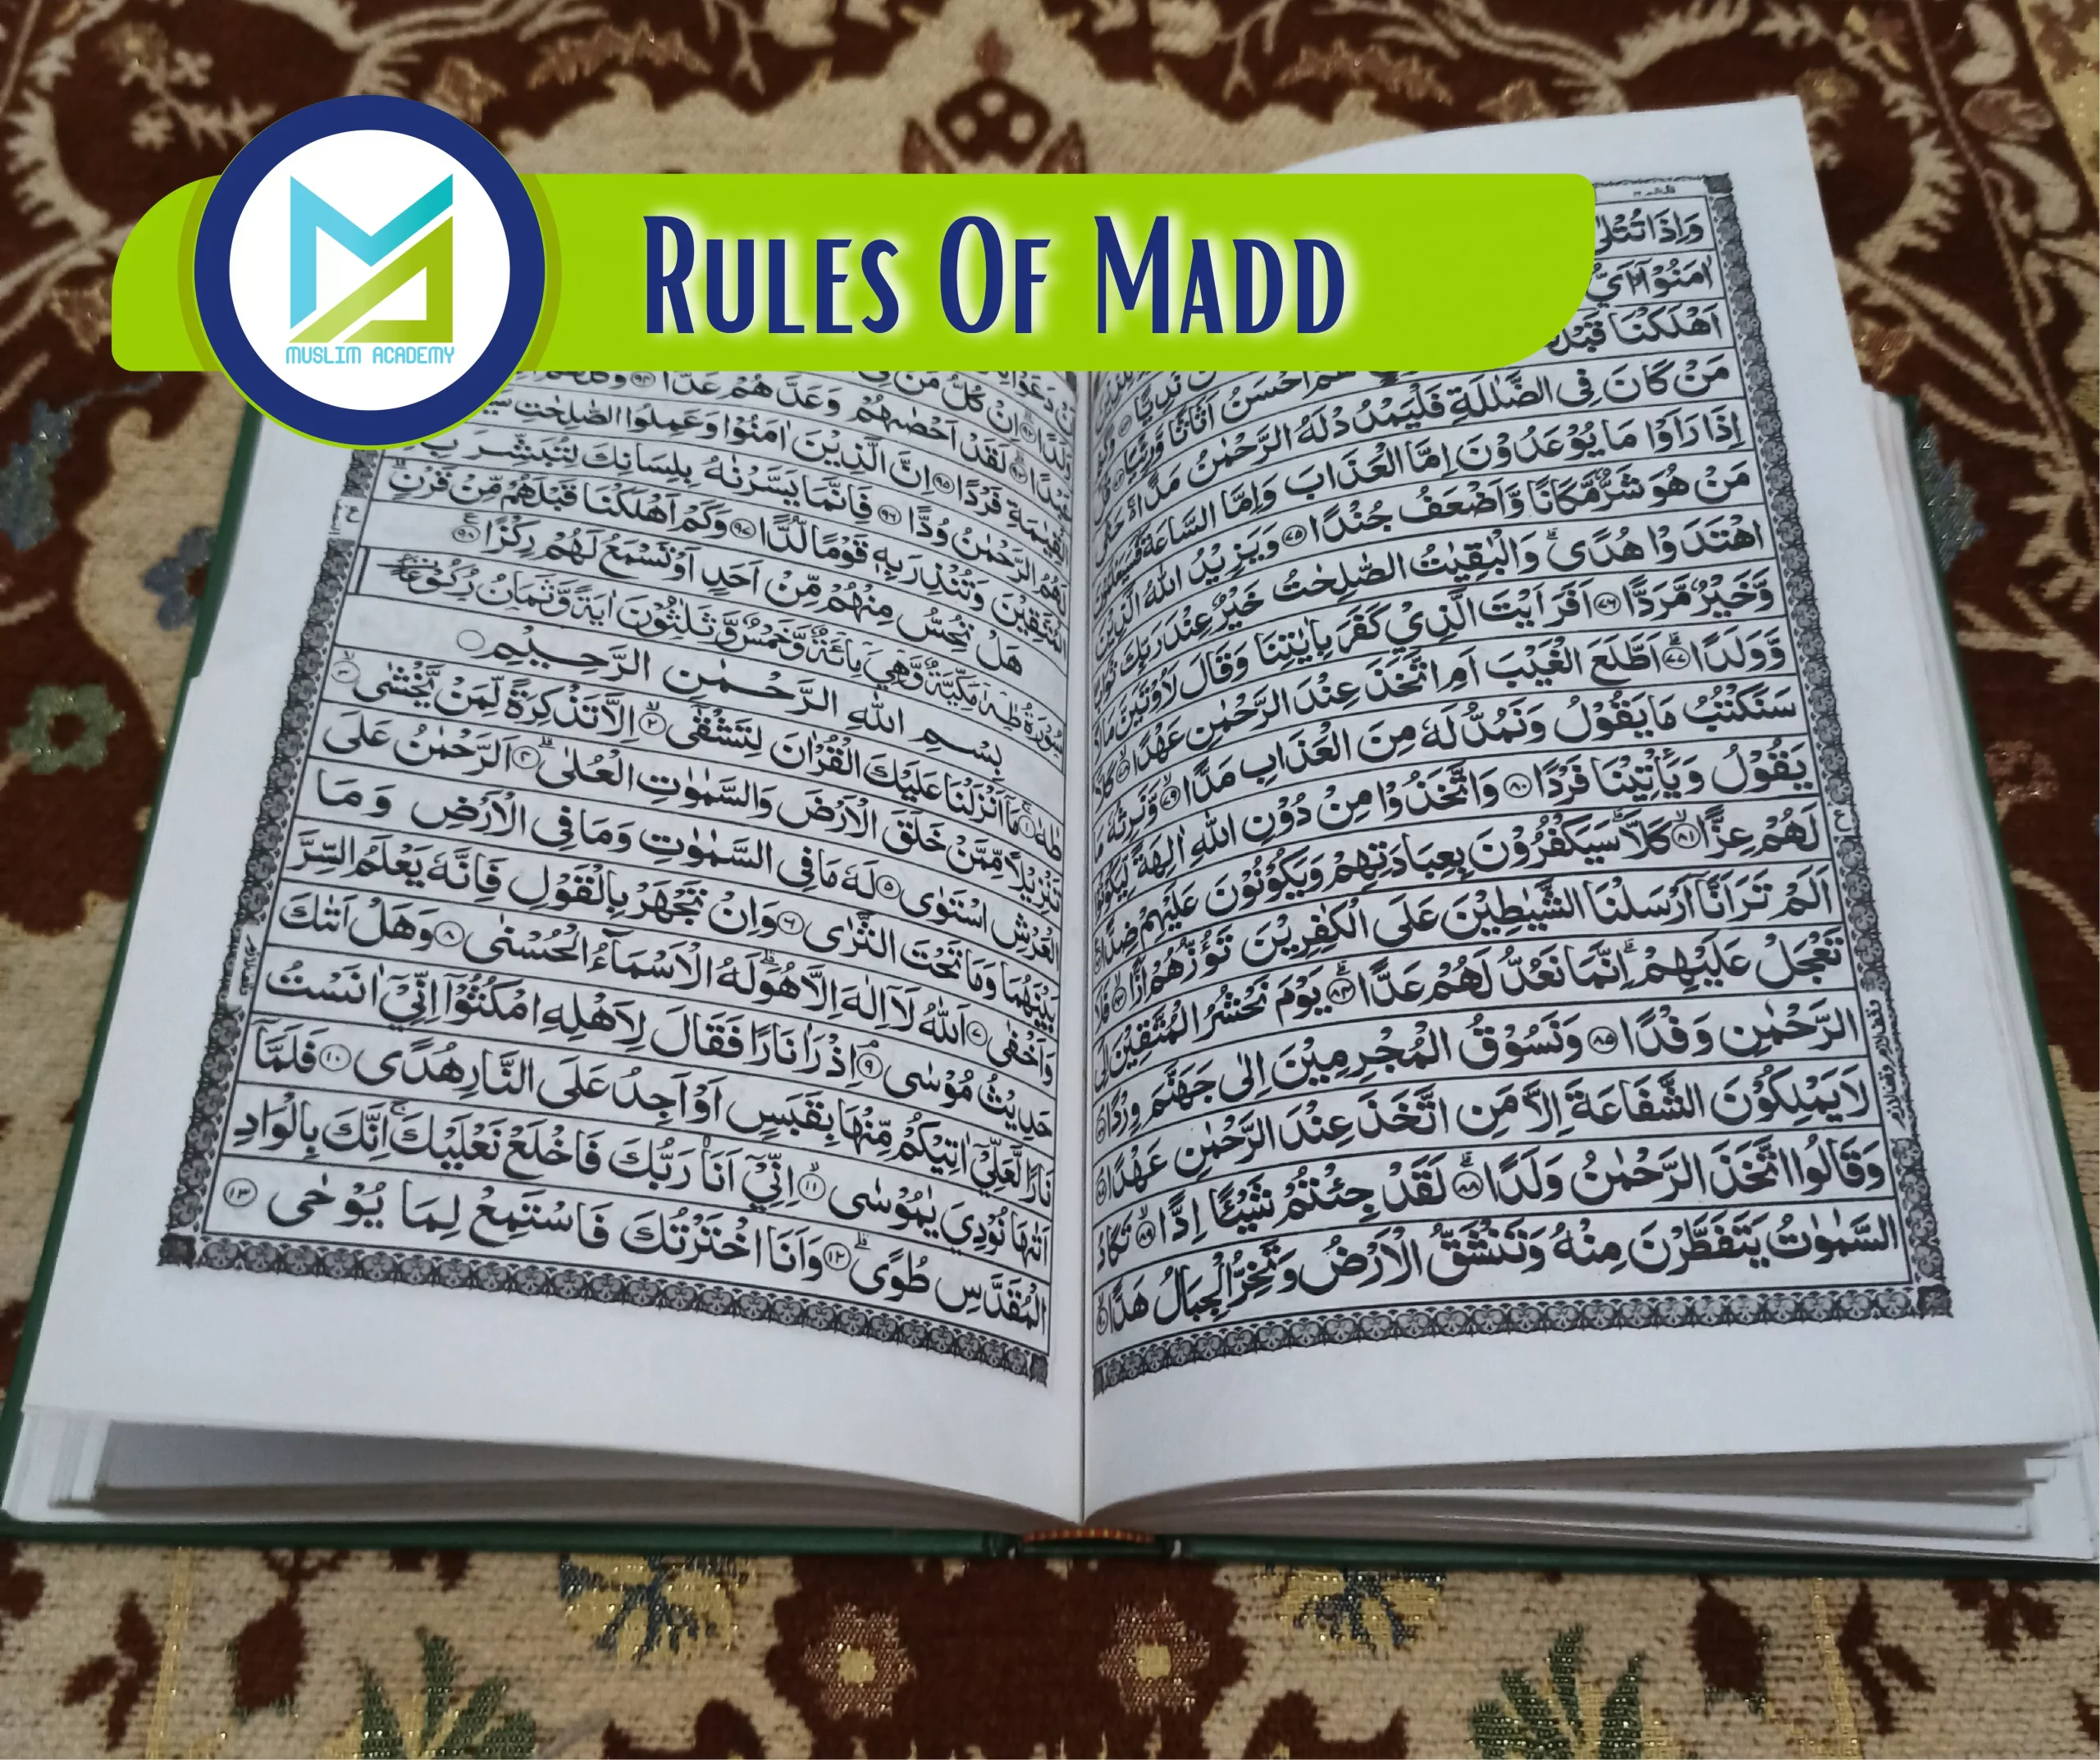 MUSLIM ACADEMY
RULES OF MADD
وَاِذَا تُتْلٰى
اٰمَنُوْٓا اَيُّ
نَدِيًّا
اَهْلَكْنَا قَبْلَ هُمْ اَحْسَنُ اَثَاثًا وَّرِءْيًا
مَنْ كَانَ فِى الضَّلٰلَةِ فَلْيَمْدُدْ لَهُ الرَّحْمٰنُ مَدًّا ۚ حَتّٰى
اِذَا رَاَوْا مَا يُوْعَدُوْنَ اِمَّا الْعَذَابَ وَاِمَّا السَّاعَةَ ؕ فَسَيَعْلَمُوْنَ
مَنْ هُوَ شَرٌّ مَّكَانًا وَّاَضْعَفُ جُنْدًا ۝۷۵ وَيَزِيْدُ اللّٰهُ الَّذِيْنَ
اهْتَدَوْا هُدًى ؕ وَالْبٰقِيٰتُ الصّٰلِحٰتُ خَيْرٌ عِنْدَ رَبِّكَ ثَوَابًا
وَّخَيْرٌ مَّرَدًّا ۝۷۶ اَفَرَءَيْتَ الَّذِيْ كَفَرَ بِاٰيٰتِنَا وَقَالَ لَاُوْتَيَنَّ مَالًا
وَّوَلَدًا ۝۷۷ اَطَّلَعَ الْغَيْبَ اَمِ اتَّخَذَ عِنْدَ الرَّحْمٰنِ عَهْدًا ۝۷۸ كَلَّا
سَنَكْتُبُ مَا يَقُوْلُ وَنَمُدُّ لَهٗ مِنَ الْعَذَابِ مَدًّا ۝۷۹ وَّنَرِثُهٗ مَا
يَقُوْلُ وَيَاْتِيْنَا فَرْدًا ۝۸۰ وَاتَّخَذُوْا مِنْ دُوْنِ اللّٰهِ اٰلِهَةً لِّيَكُوْنُوْا
لَهُمْ عِزًّا ۝۸۱ كَلَّا ؕ سَيَكْفُرُوْنَ بِعِبَادَتِهِمْ وَيَكُوْنُوْنَ عَلَيْهِمْ ضِدًّا
اَلَمْ تَرَ اَنَّآ اَرْسَلْنَا الشَّيٰطِيْنَ عَلَى الْكٰفِرِيْنَ تَؤُزُّهُمْ اَزًّا ۝۸۳ فَلَا
تَعْجَلْ عَلَيْهِمْ ؕ اِنَّمَا نَعُدُّ لَهُمْ عَدًّا ۝۸۴ يَوْمَ نَحْشُرُ الْمُتَّقِيْنَ اِلَى
الرَّحْمٰنِ وَفْدًا ۝۸۵ وَنَسُوْقُ الْمُجْرِمِيْنَ اِلٰى جَهَنَّمَ وِرْدًا
لَا يَمْلِكُوْنَ الشَّفَاعَةَ اِلَّا مَنِ اتَّخَذَ عِنْدَ الرَّحْمٰنِ عَهْدًا
وَقَالُوا اتَّخَذَ الرَّحْمٰنُ وَلَدًا ۝۸۸ لَقَدْ جِئْتُمْ شَيْئًا اِدًّا ۝۸۹ تَكَادُ
السَّمٰوٰتُ يَتَفَطَّرْنَ مِنْهُ وَتَنْشَقُّ الْاَرْضُ وَتَخِرُّ الْجِبَالُ هَدًّا
وَلَدًا اِنْ كُلُّ مَنْ فِى
عَبْدًا لَقَدْ اَحْصٰىهُمْ وَعَدَّهُمْ عَدًّا ۝۹۴ وَكُلُّهُمْ
الْقِيٰمَةِ فَرْدًا ۝۹۵ اِنَّ الَّذِيْنَ اٰمَنُوْا وَعَمِلُوا الصّٰلِحٰتِ
لَهُمُ الرَّحْمٰنُ وُدًّا ۝۹۶ فَاِنَّمَا يَسَّرْنٰهُ بِلِسَانِكَ لِتُبَشِّرَ بِهِ
الْمُتَّقِيْنَ وَتُنْذِرَ بِهٖ قَوْمًا لُّدًّا ۝۹۷ وَكَمْ اَهْلَكْنَا قَبْلَهُمْ مِّنْ قَرْنٍ
هَلْ تُحِسُّ مِنْهُمْ مِّنْ اَحَدٍ اَوْ تَسْمَعُ لَهُمْ رِكْزًا ۝۹۸
سُوْرَةُ طٰهٰ مَكِّيَّةٌ وَّهِيَ مِائَةٌ وَّخَمْسٌ وَّثَلٰثُوْنَ اٰيَةً وَّثَمَانُ رُكُوْعَاتٍ
بِسْمِ اللّٰهِ الرَّحْمٰنِ الرَّحِيْمِ
طٰهٰ ۝۱ مَآ اَنْزَلْنَا عَلَيْكَ الْقُرْاٰنَ لِتَشْقٰٓى ۝۲ اِلَّا تَذْكِرَةً لِّمَنْ يَّخْشٰى ۝۳
تَنْزِيْلًا مِّمَّنْ خَلَقَ الْاَرْضَ وَالسَّمٰوٰتِ الْعُلٰى ۝۴ اَلرَّحْمٰنُ عَلَى
الْعَرْشِ اسْتَوٰى ۝۵ لَهٗ مَا فِى السَّمٰوٰتِ وَمَا فِى الْاَرْضِ وَمَا
بَيْنَهُمَا وَمَا تَحْتَ الثَّرٰى ۝۶ وَاِنْ تَجْهَرْ بِالْقَوْلِ فَاِنَّهٗ يَعْلَمُ السِّرَّ
وَاَخْفٰى ۝۷ اَللّٰهُ لَآ اِلٰهَ اِلَّا هُوَ ؕ لَهُ الْاَسْمَآءُ الْحُسْنٰى ۝۸ وَهَلْ اَتٰىكَ
حَدِيْثُ مُوْسٰى ۝۹ اِذْ رَاٰ نَارًا فَقَالَ لِاَهْلِهِ امْكُثُوْٓا اِنِّيْٓ اٰنَسْتُ
نَارًا لَّعَلِّيْٓ اٰتِيْكُمْ مِّنْهَا بِقَبَسٍ اَوْ اَجِدُ عَلَى النَّارِ هُدًى ۝۱۰ فَلَمَّآ
اَتٰىهَا نُوْدِيَ يٰمُوْسٰى ۝۱۱ اِنِّيْٓ اَنَا رَبُّكَ فَاخْلَعْ نَعْلَيْكَ ۚ اِنَّكَ بِالْوَادِ
الْمُقَدَّسِ طُوًى ۝۱۲ وَاَنَا اخْتَرْتُكَ فَاسْتَمِعْ لِمَا يُوْحٰى ۝۱۳